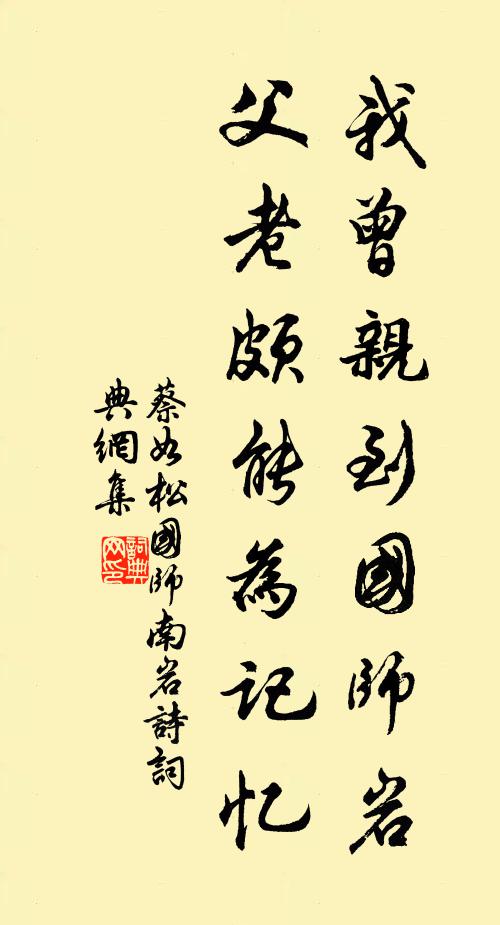 我曾親到國師岩
父老頗能為记忆
蔡如松國師南岩詩詞
典網集
詞典
网印